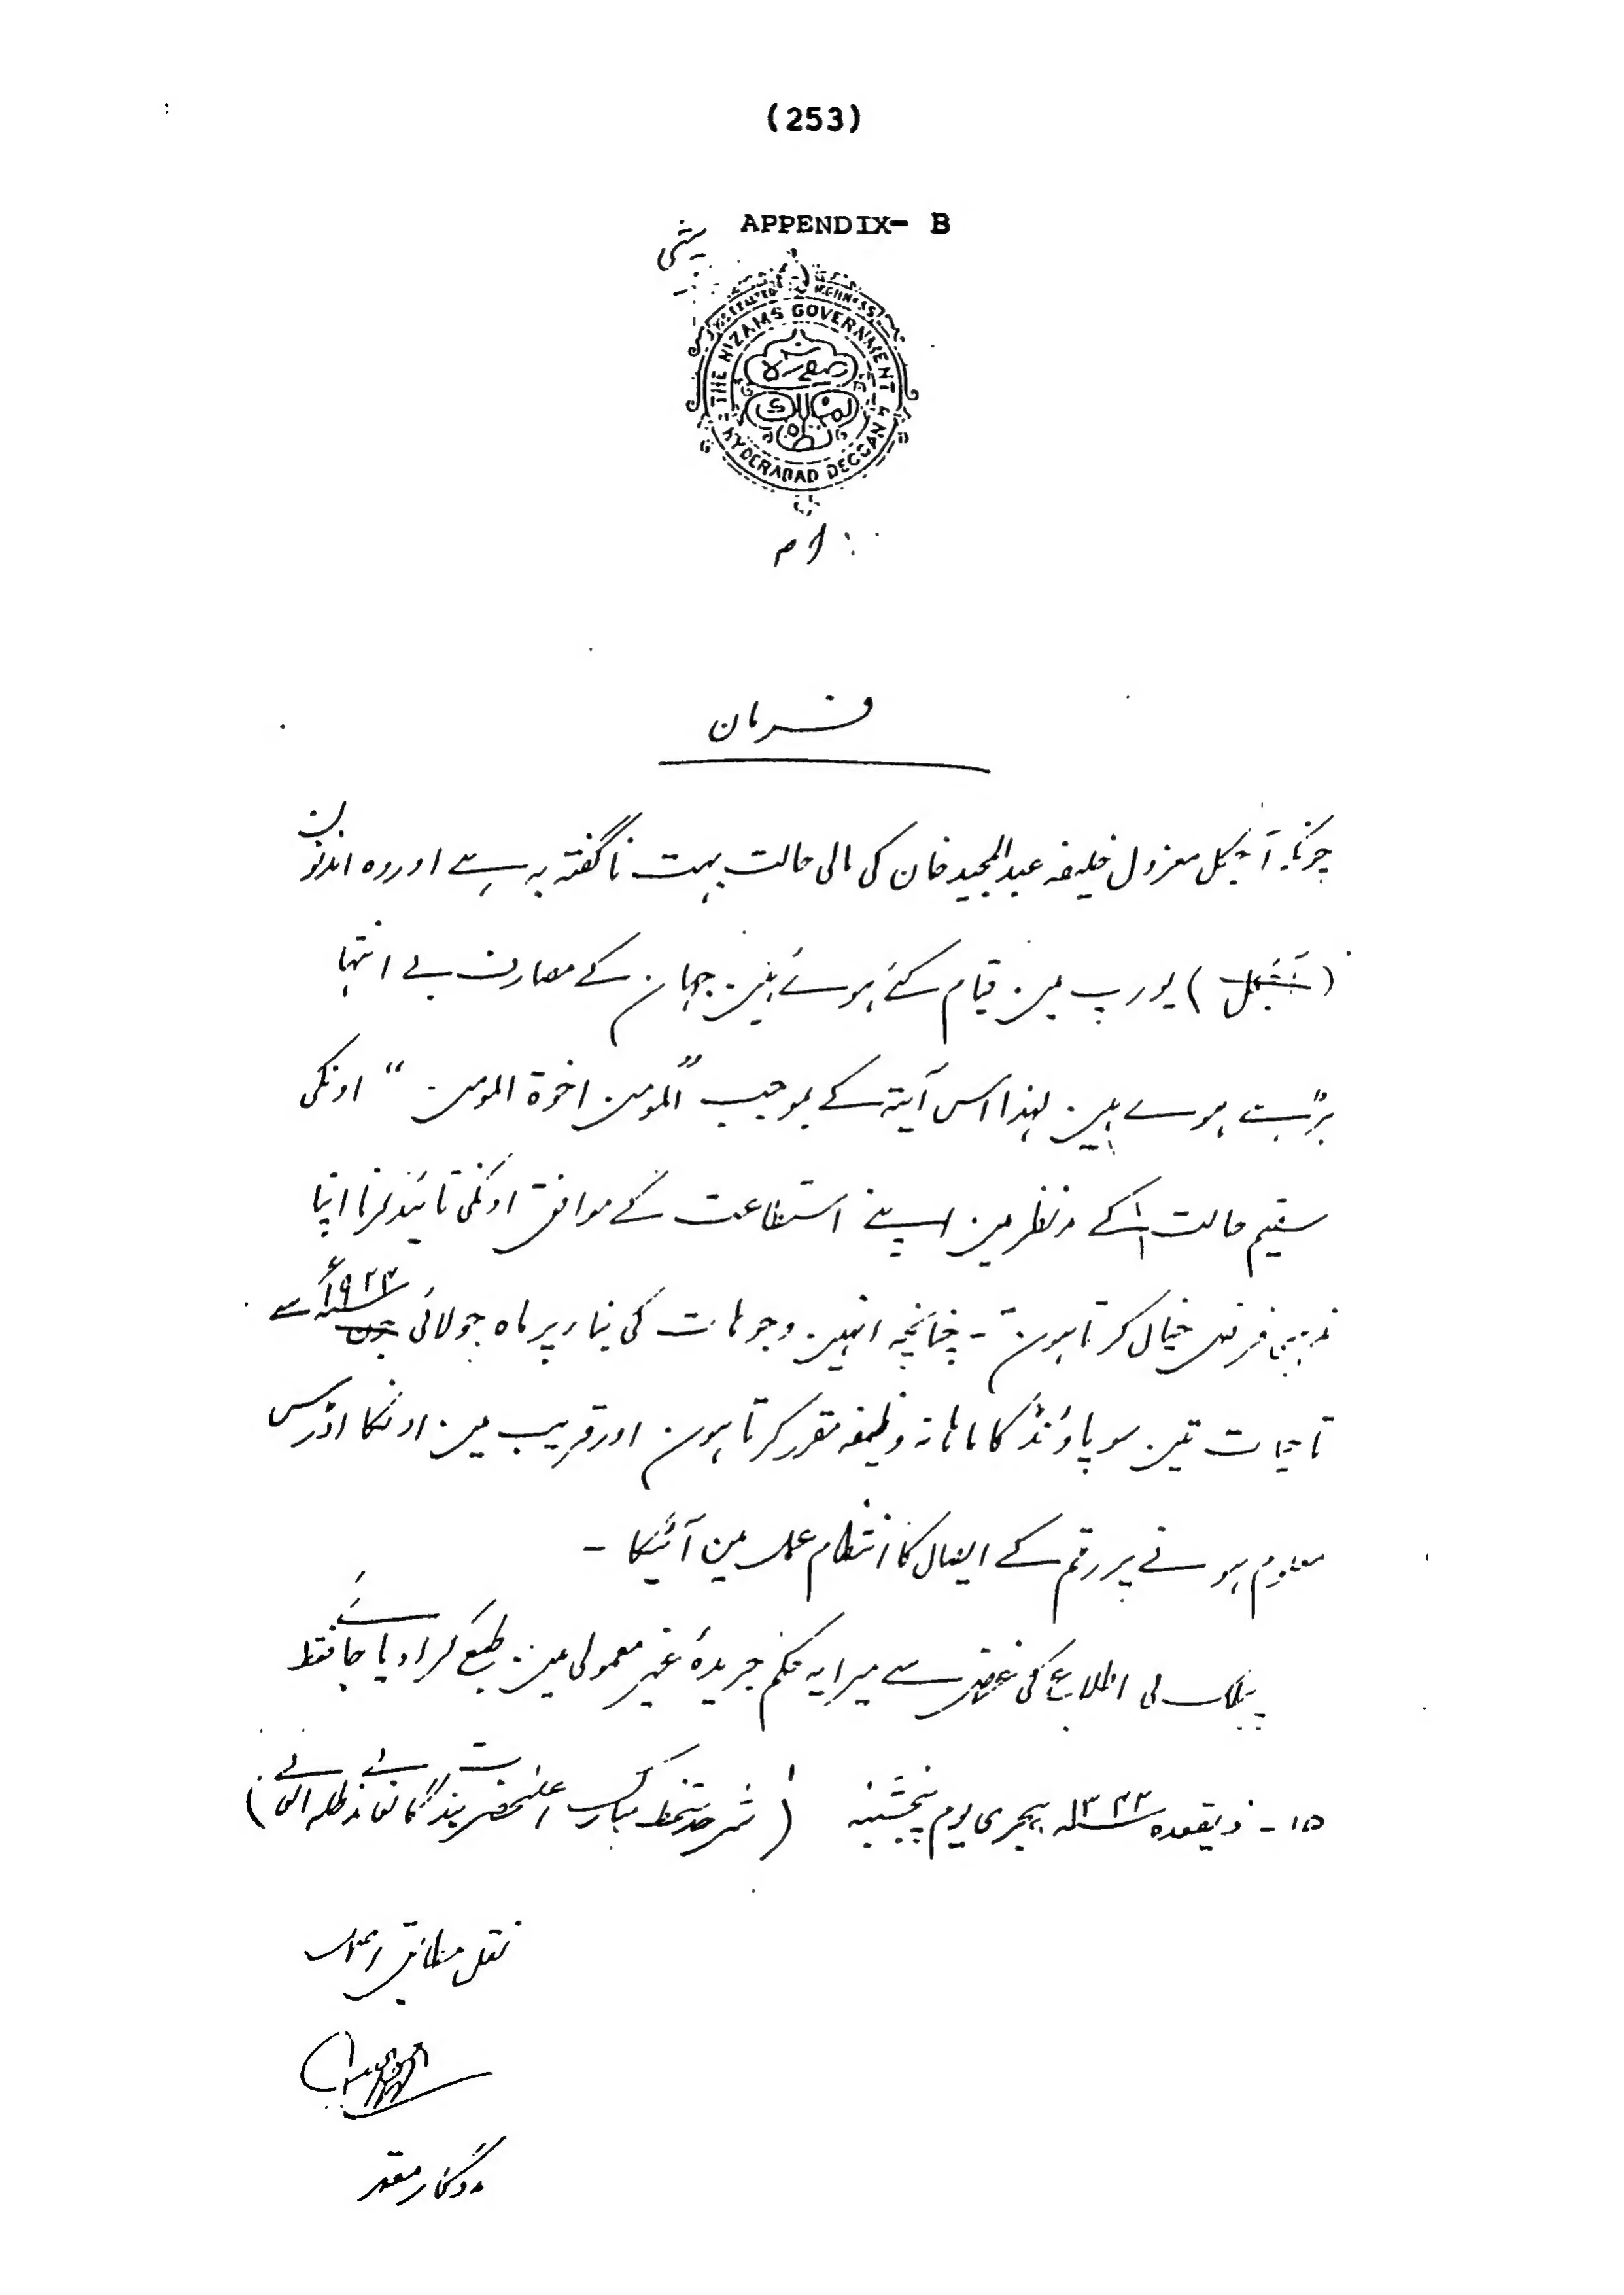 (253)
APPENDIX- B
پیشی
HIS EXALTED HIGHNESS
THE NIZAMS GOVERNMENT
HYDERABAD DECCAN
فرمان
چونکہ آجکل معزول خلیفہ عبدالمجید خان کی مالی حالت بہت ناگفتہ بہ ہے اور وہ اندنون
یورپ مین قیام کئے ہوئے ہین جہان کے مصارف بے انتہا
بڑہے ہوے ہین لہذا اس آیتہ کے بموجب "المومن اخوة المومن" اونکی
سقیم حالت کے مدنظر مین اپنے استطاعت کے موافق اونکی تائید کرنا اپنا
مذہبی فرض خیال کرتا ہون - چنانچہ انہین وجوہات کی بنا پر ماہ جولائی ۱۹۲۴ء سے
تا حیات تین سو پاونڈ کا ماہانہ وظیفہ مقرر کرتا ہون اور قریب مین اونکا اڈرس
معلوم ہونے پر رقم کے ایصال کا انتظام عمل مین آئیگا -
پبلک کی اطلاع کی غرض سے میرا یہ حکم جریدۂ غیر معمولی مین طبع کرا دیا جائے فقط
۱۵ - ذیقعدہ ۱۳۴۲ ہجری یوم پنجشنبہ (شرحدستخط مبارک اعلیحضرت بندگانعالی مدظلہ العالی)
نقل مطابق اصل
مددگار معتمد